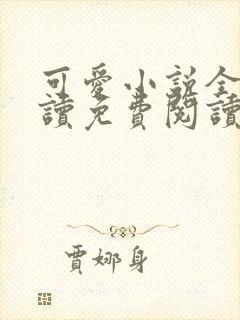 可愛小説全
讀免費閱讀
賈娜身